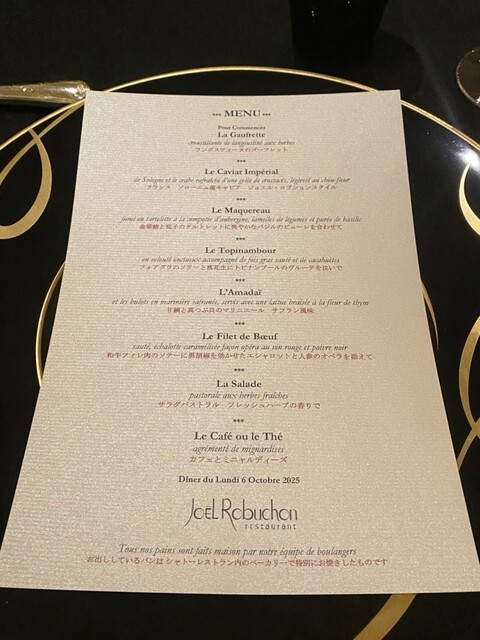 *** MENU ***
Pour Commencer
La Gaufrette
croustillante de langoustine aux herbes
ラングスティーヌのガーフレット
***
Le Caviar Impérial
de Sologne et le crabe rafraîchi d'une gelée de crustacés, légèreté au chou-fleur
フランス ソローニュ産キャビア ジョエル・ロブションスタイル
***
Le Maquereau
fumé en tartelette à la compotée d'aubergine, lamelles de légumes et purée de basilic
金華鯖と茄子のタルトレットに爽やかなバジルのピューレを合わせて
***
Le Topinambour
en velouté onctueux accompagné de foie gras sauté et de cacahuètes
フォアグラのソテーと落花生にトピナンブールのヴルーテを注いで
***
L'Amadaï
et les bulots en marinière safranée, servis avec une laitue braisée à la fleur de thym
甘鯛と真つぶ貝のマリニエール サフラン風味
***
Le Filet de Bœuf
sauté, échalote caramélisée façon opéra au vin rouge et poivre noir
和牛フィレ肉のソテーに黒胡椒を効かせたエシャロットと人参のオペラを添えて
***
La Salade
pastorale aux herbes fraîches
サラダパストラル フレッシュハーブの香りで
***
Le Café ou le Thé
agrémenté de mignardises
カフェとミニャルディーズ
Dîner du Lundi 6 Octobre 2025
JoëL Robuchon
restaurant
Tous nos pains sont faits maison par notre équipe de boulangers
お出ししているパンは シャトーレストラン内のベーカリーで特別にお焼きしたものです